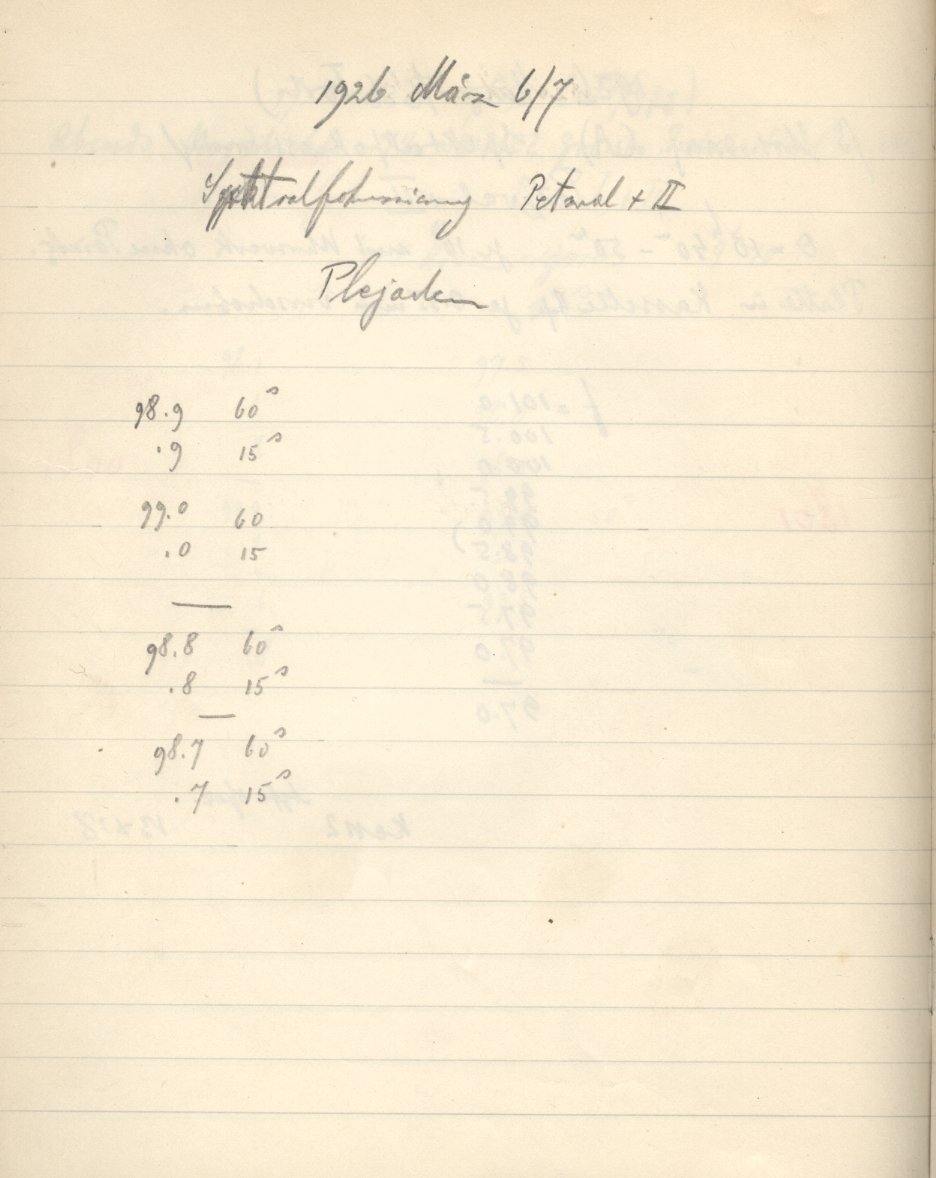 1926 März 6/7
Spektralfokussierung Petzval + II
Plejaden
98.9 60ˢ
.9 15ˢ
99.0 60
.0 15
98.8 60ˢ
.8 15ˢ
98.7 60ˢ
.7 15ˢ